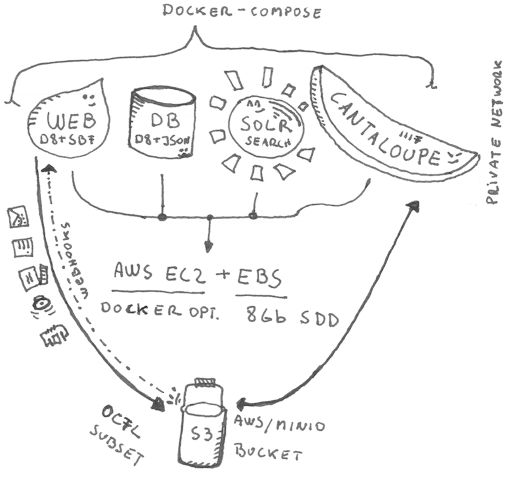 DOCKER-COMPOSE
WEB
D8+SBF
DB
D8+JSON
SOLR
SEARCH
CANTALOUPE
PRIVATE NETWORK
WEBHOOKS
AWS EC2 + EBS
DOCKER OPT. 8Gb SDD
OCFL
SUBSET
S3
AWS/MINIO
BUCKET